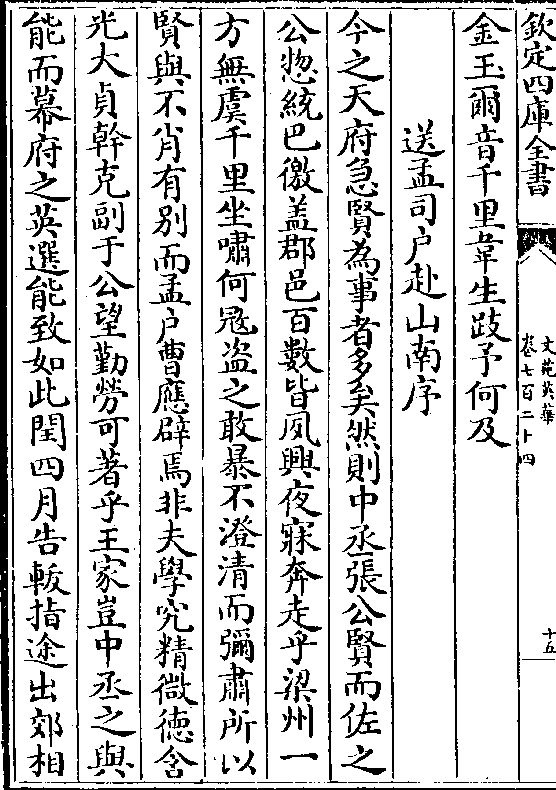 欽定四庫全書
文苑英華
卷七百二十四
十五
金玉爾音千里韋生跂予何及
送孟司户赴山南序
今之天府急賢為事者多矣然則中丞張公賢而佐之
公惣統巴徼盖郡邑百數皆夙興夜寐奔走乎梁州一
方無虞千里坐嘯何㓂盗之敢暴不澄清而彌肅所以
賢與不肖有别而孟户曹應辟焉非夫學究精微徳含
光大貞幹克副于公望勤勞可著乎王家豈中丞之與
能而幕府之英選能致如此閏四月告軷指途出郊相